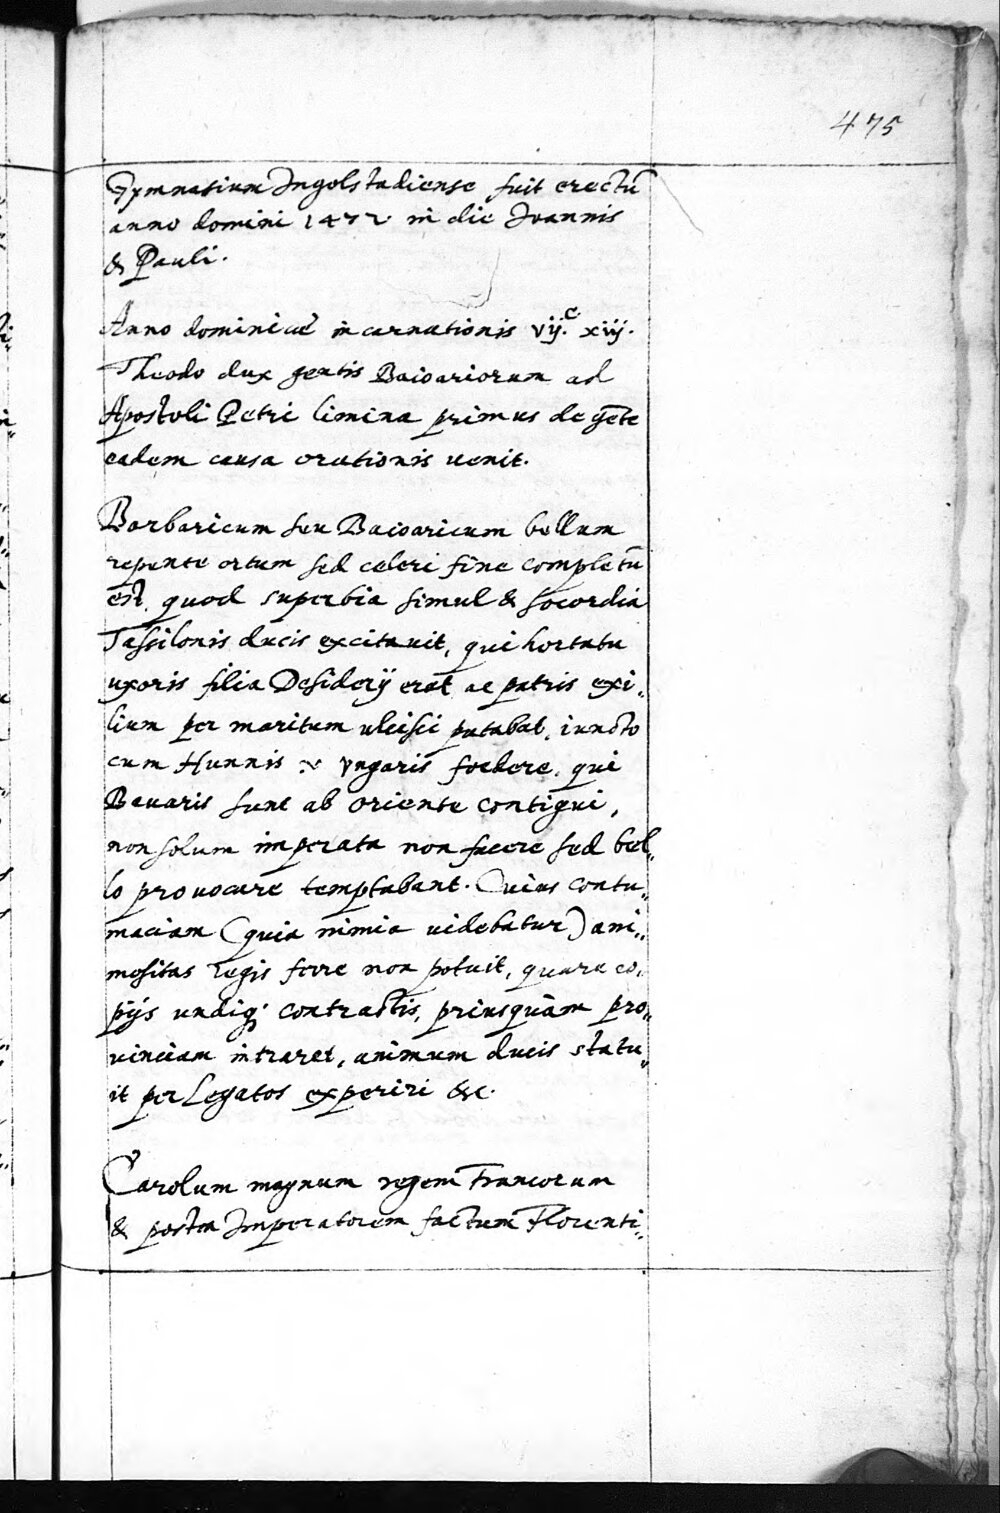 475
Gymnasium Ingolstadiense fuit erectũ
anno domini 1472 in die Joannis
& Pauli.
Anno dominicae incarnationis vij.c xiij.
Theodo dux gentis Baioariorum ad
Apostoli Petri limina primus de gẽte
eadem causa orationis uenit.
Barbaricum seu Baioaricum bellum
repente ortum sed celeri fine completũ
est, quod superbia simul & socordia
Tassilonis ducis excitauit, qui hortatu
uxoris filia Desiderij erat ac patris exi„
lium per maritum ulcisci putabat, iuncto
cum Hunnis vngaris foedere, qui
Bauaris sunt ab oriente contigui,
non solum imperata non facere sed bel„
lo prouocare temptabant. Cuius contu„
maciam (quia nimia uidebatur) ani„
mositas regis ferre non potuit, quare co„
pijs undiq; contractis, priusquàm pro„
uinciam intraret, animum ducis statu„
it per Legatos experiri &c.
Carolum magnum regem Francorum
& postea Imperatorem factum Florenti„